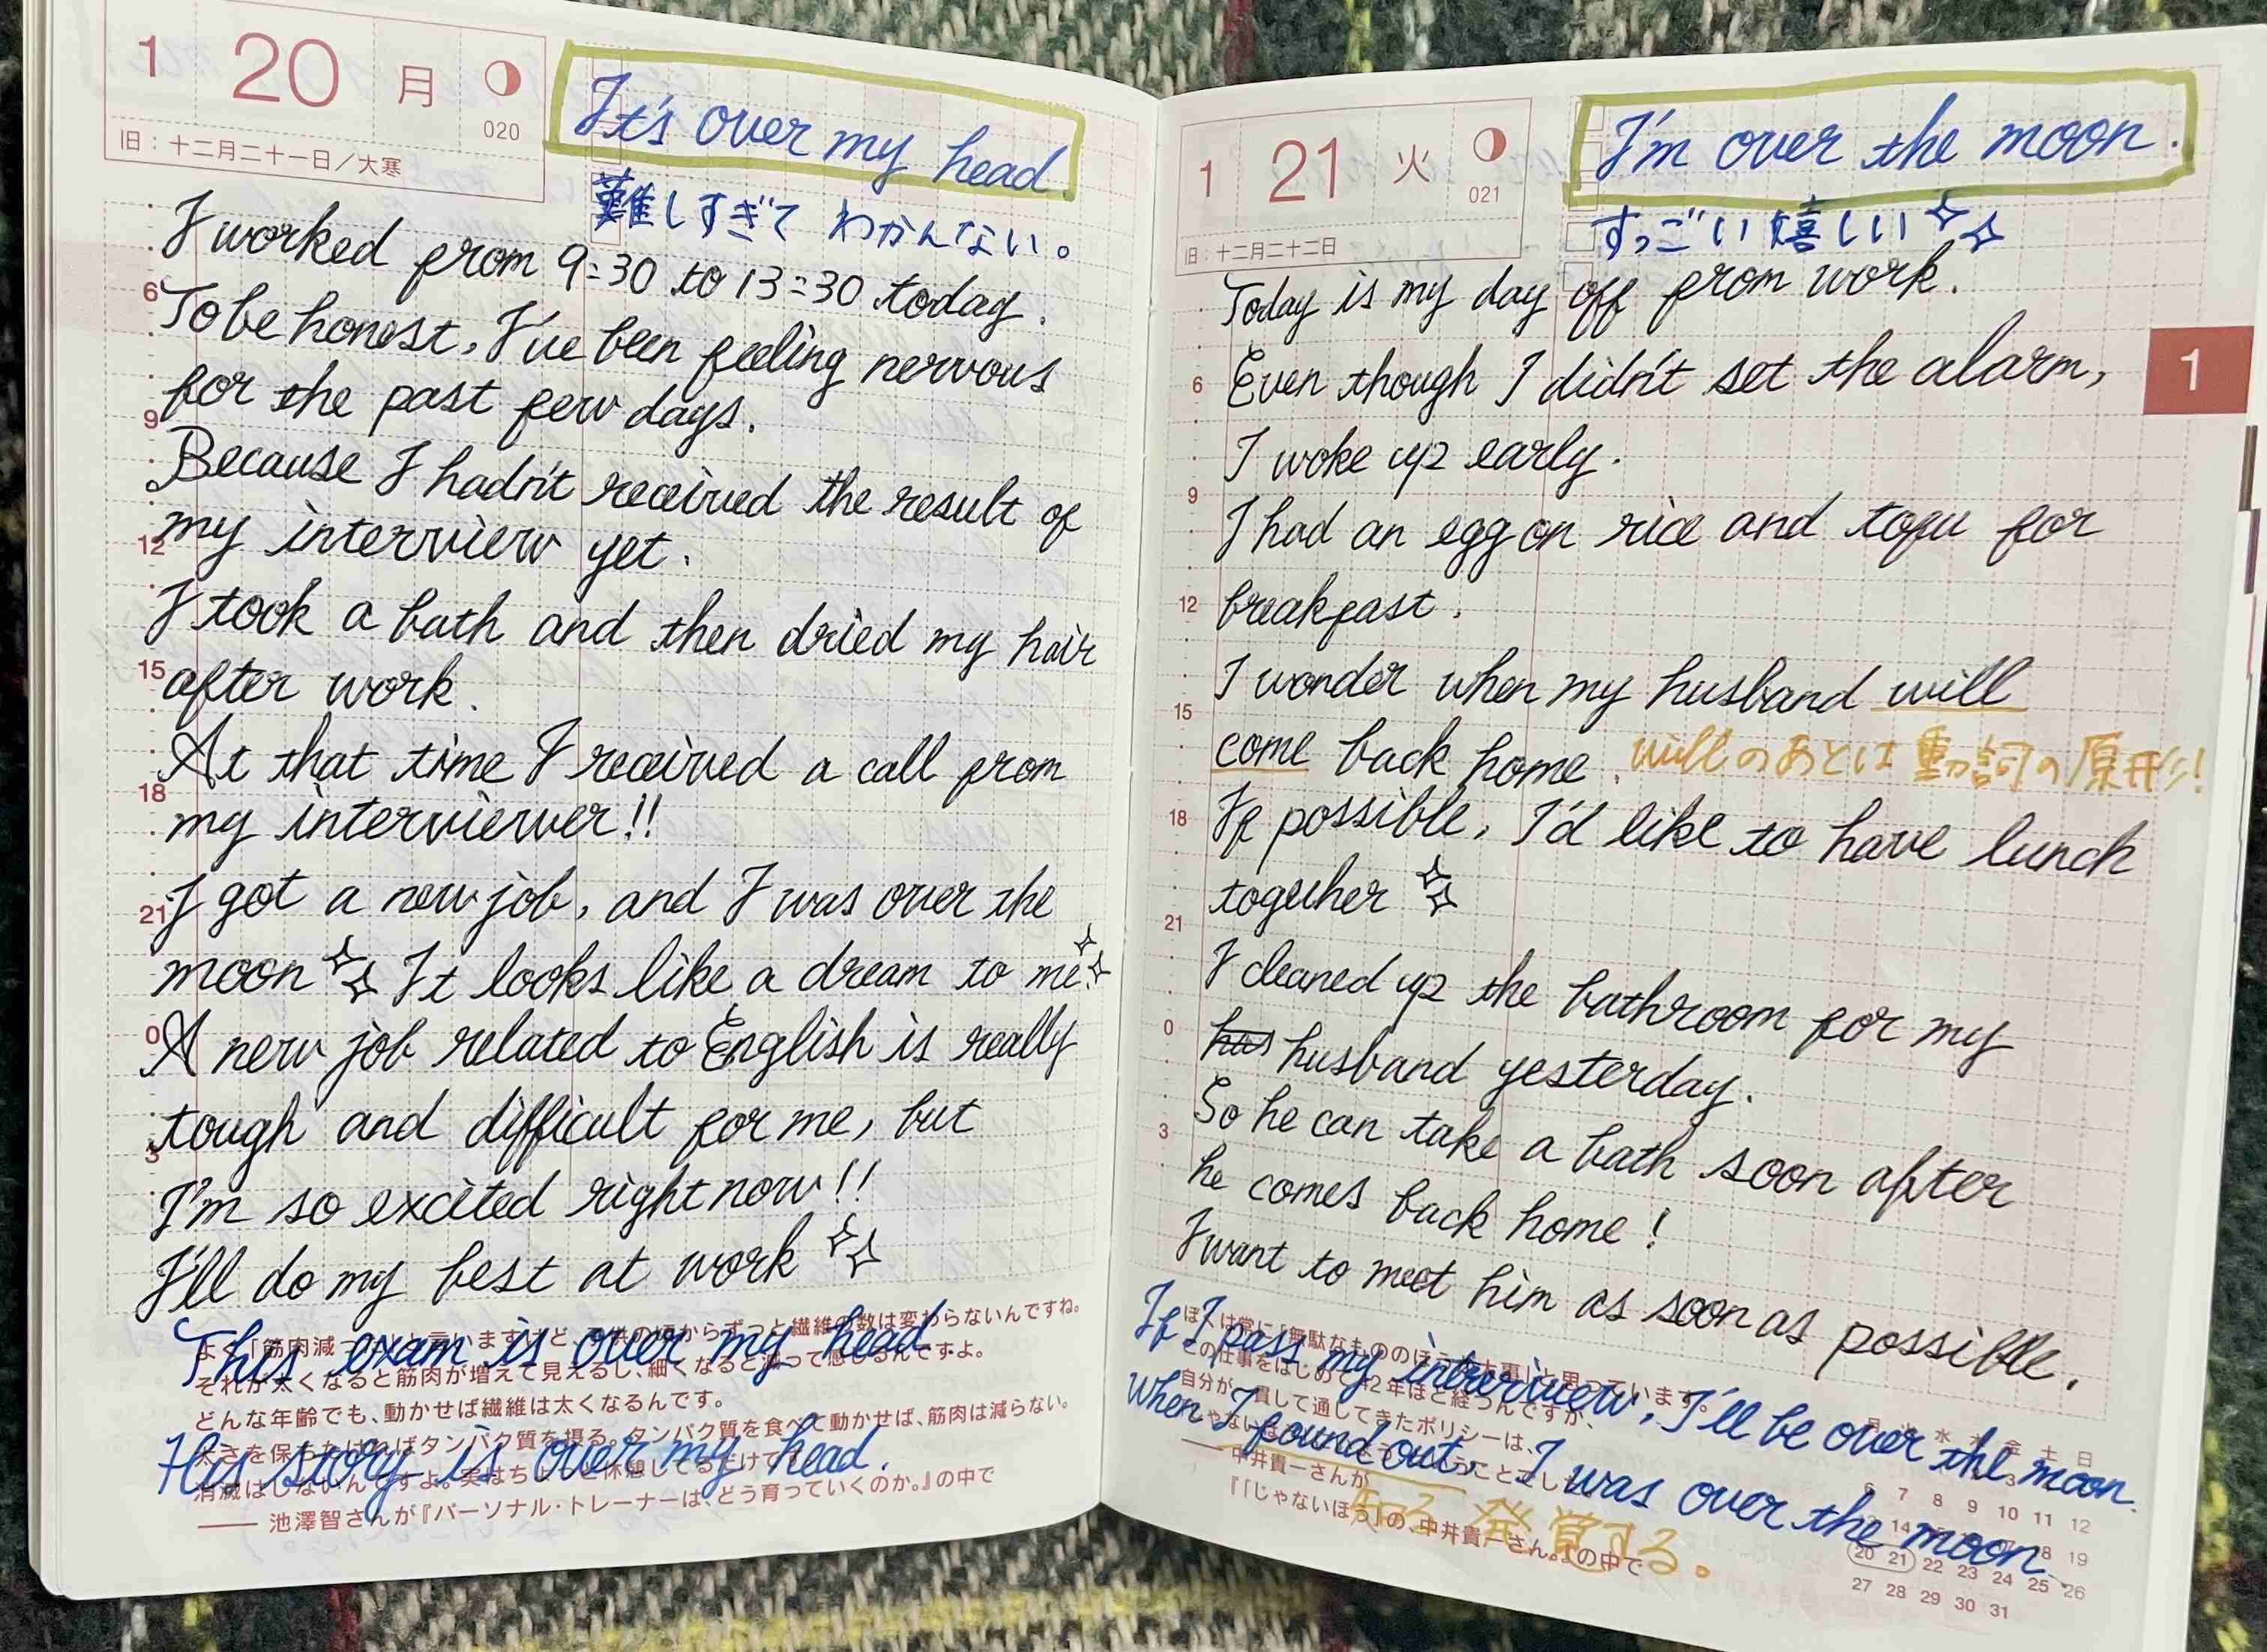 1 20 月
020
旧：十二月二十一日／大寒
It's over my head.
難しすぎて わかんない。
I worked from 9:30 to 13:30 today.
To be honest, I've been feeling nervous
for the past few days.
Because I hadn't received the result of
my interview yet.
I took a bath and then dried my hair
after work.
At that time I received a call from
my interviewer!!
I got a new job, and I was over the
moon It looks like a dream to me.
A new job related to English is really
tough and difficult for me, but
I'm so excited right now!!
I'll do my best at work
6
9
12
15
18
21
0
3
This exam is over my head.
His story is over my head.
それが太くなると筋肉が増えて見えるし、細くなると減って感じるんですよ。
どんな年齢でも、動かせば繊維は太くなるんです。
—— 池澤智さんが『パーソナル・トレーナーは、どう育っていくのか。』の中で
1 21 火
021
旧：十二月二十二日
I'm over the moon.
すっごい嬉しい
1
Today is my day off from work.
Even though I didn't set the alarm,
I woke up early.
I had an egg on rice and tofu for
breakfast.
I wonder when my husband will
come back home. willのあとは動詞の原形!
If possible, I'd like to have lunch
together
I cleaned up the bathroom for my
has husband yesterday.
So he can take a bath soon after
he comes back home!
I want to meet him as soon as possible.
6
9
12
15
18
21
0
3
If I pass my interview, I'll be over the moon.
When I found out, I was over the moon.
知る 発覚する。
自分が一貫して通してきたポリシーは、
—— 中井貴一さんが
『「じゃないほう」の、中井貴一さん。』の中で
土 日
6 7 8 9 10 11 12
14 18 19
20 21 22 23 24 25 26
27 28 29 30 31